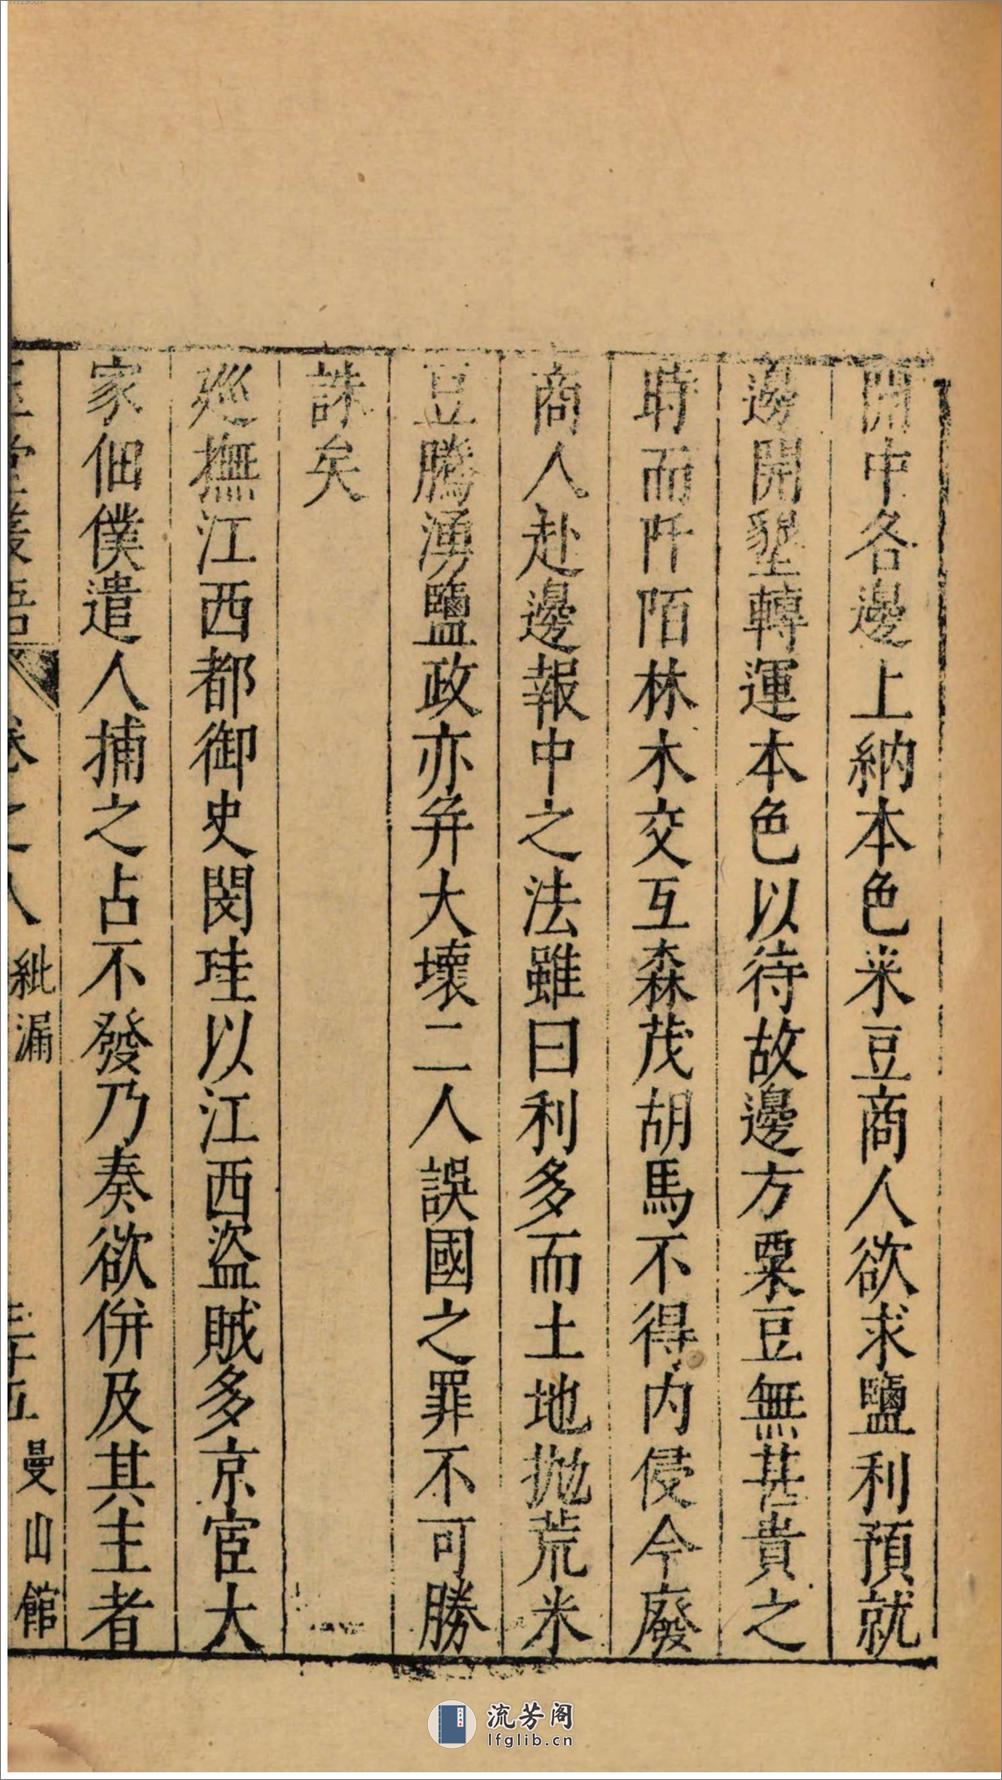 開中各邊上納本色米豆商人欲求鹽利預就
邊開墾轉運本色以待故邊方粟豆無甚貴之
時而阡陌林木交互森茂胡馬不得内侵今廢
商人赴邊報中之法雖曰利多而土地抛荒米
豆騰湧鹽政亦弁大壞二人誤國之罪不可勝
誅矣
廵撫江西都御史閔珪以江西盜賊多京宦大
家佃僕遣人捕之占不發乃奏欲併及其主者
玉堂叢語 卷之八 紕漏 三十五 曼山館
流芳阁
lfglib.cn